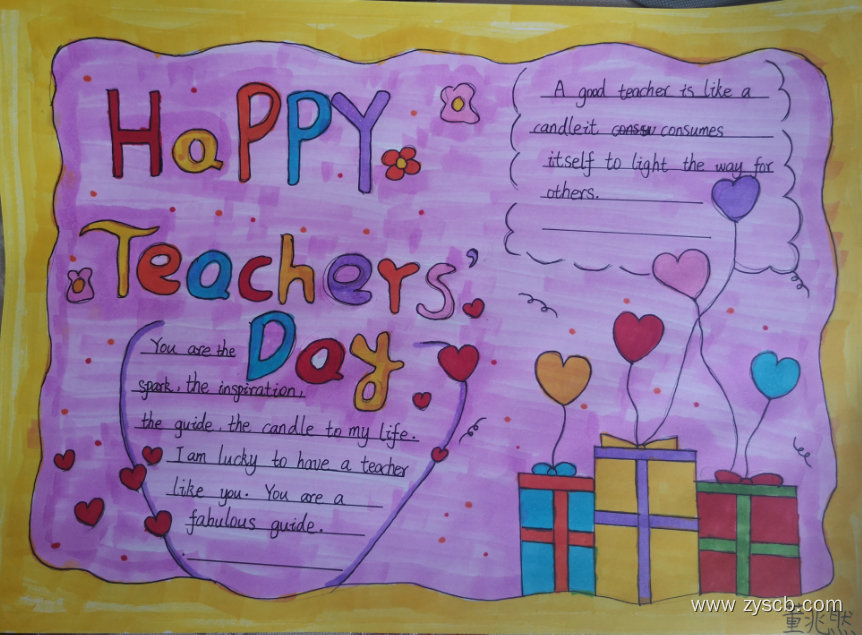 HaPPY
Teachers'
Day
A good teacher is like a
candleit consumes
itself to light the way for
others.
You are the
spark, the inspiration,
the guide, the candle to my life.
I am lucky to have a teacher
like you. You are a
fabulous guide.
www.zyscb.com
董兆然